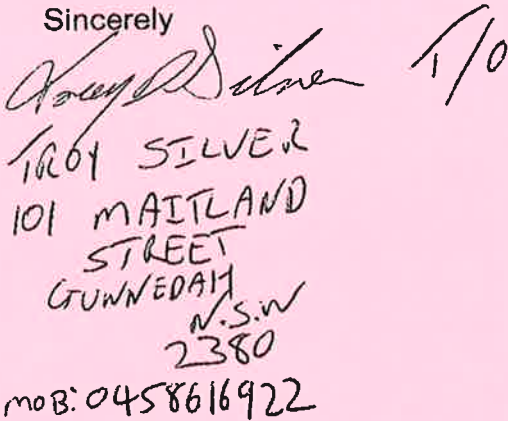 Sincerely
Troy D Silver T/O
TROY SILVER
101 MAITLAND
STREET
GUNNEDAH
N.S.W
2380
MOB: 0458616922